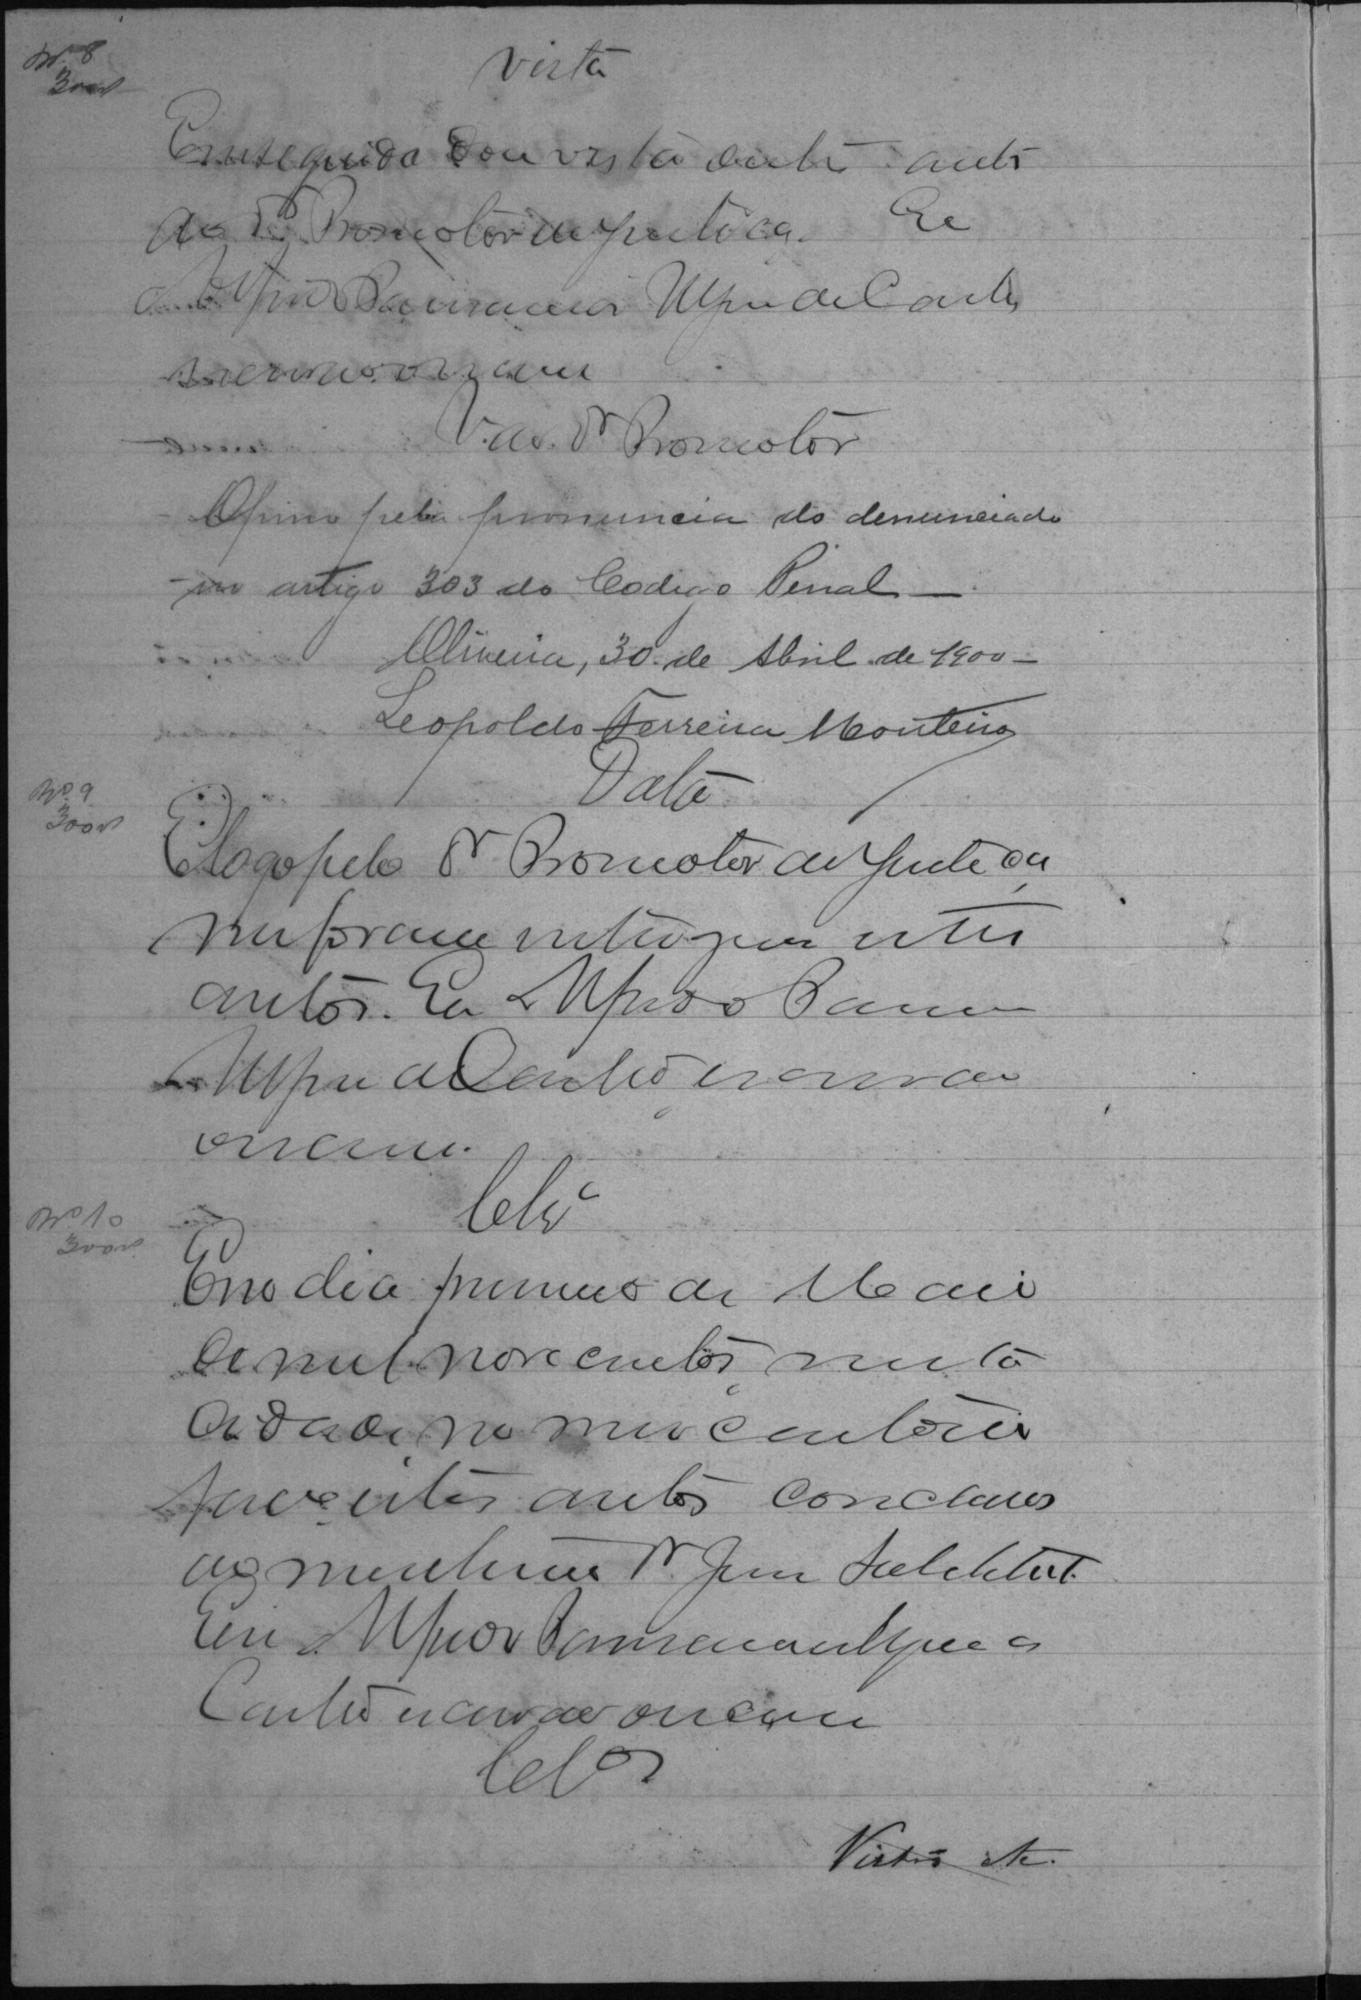 Nº 8
300 rs
Vista
Em seguida dou vista destes autos
ao Dr Promotor de Justiça. Eu
Escrivão o escrevi
V. ao Dr Promotor
Opino pela pronuncia do denunciado
no artigo 303 do Codigo Penal —
Oliveira, 30 de Abril de 1900 —
Leopoldo Ferreira Monteiro
Data
Nº 9
300 rs
E logo pelo Dr Promotor de Justiça
me foram entregues estes
autos. Eu
de Castro escrivão
o escrevi.
Clsº
Nº 10
300 rs
E no dia primeiro de Maio
de mil novecentos nesta
cidade no meu cartorio
faço estes autos conclusos
ao meretissimo Dr. Juiz Substituto.
Eu
Castro escrivão o escrevi
Clºs
Vistos etc.